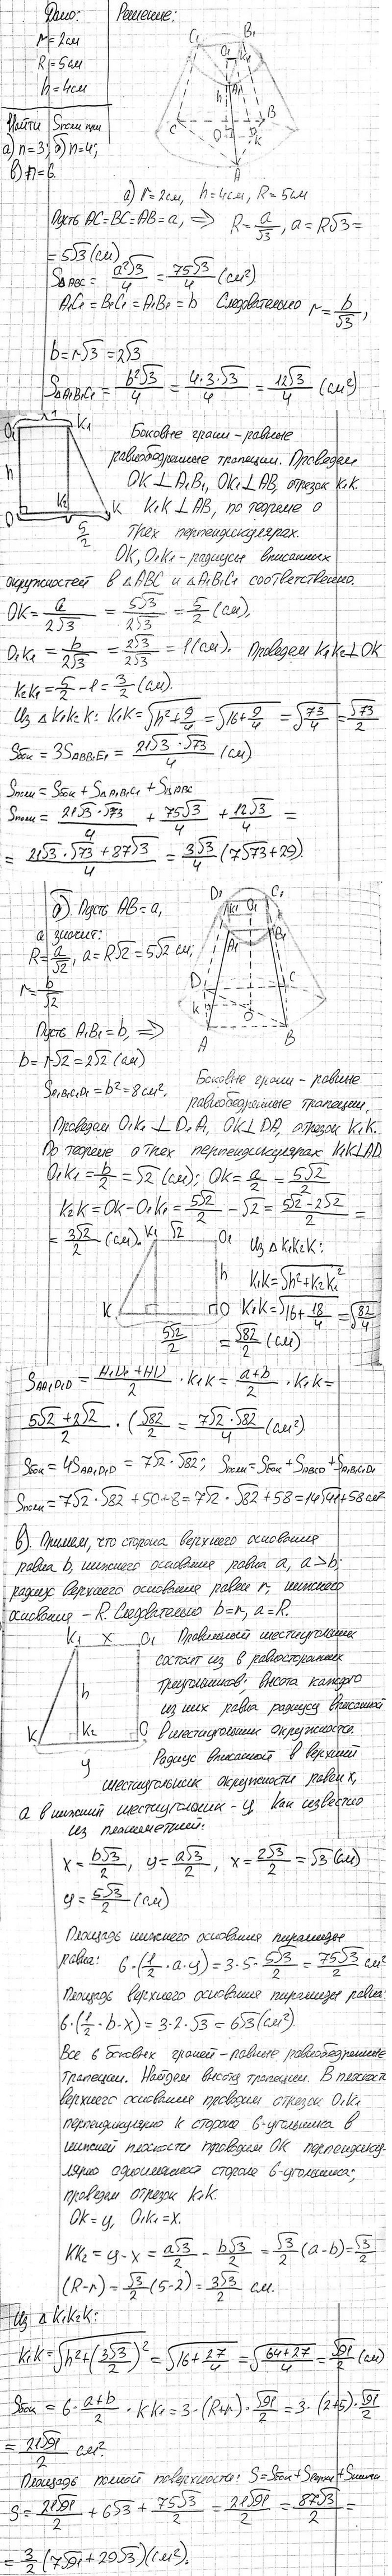 Дано:
r = 2см
R = 5см
h = 4см
Найти Sполн при
а) n=3; б) n=4;
в) n=6.
Решение:
C₁ B₁
O₁ K₁
A₁
h
C O B
K
A
а) r=2см, h=4см, R=5см
Пусть AC=BC=AB=a, ⇒ R=a/√3, a=R√3=
=5√3 (см)
S△ABC = a²√3/4 = 75√3/4 (см²)
A₁C₁=B₁C₁=A₁B₁=b Следовательно r=b/√3,
b=r√3=2√3
S△A₁B₁C₁ = b²√3/4 = 4·3·√3/4 = 12√3/4 (см²)
O₁ 1 K₁
h
O K₂ K
5/2
Боковые грани - равные
равнобедренные трапеции. Проведем
OK⊥A₁B₁, OK₁⊥AB, отрезок K₁K.
K₁K⊥AB, по теореме о
трех перпендикулярах.
OK, O₁K₁ - радиусы вписанных
окружностей в △ABC и △A₁B₁C₁ соответственно.
OK = a/2√3 = 5√3/2√3 = 5/2 (см),
O₁K₁ = b/2√3 = 2√3/2√3 = 1(см). Проведем K₁K₂⊥OK
K₂K₁ = 5/2 - 1 = 3/2 (см).
Из △K₁K₂K: K₁K=√(h²+9/4)=√(16+9/4)=√(73/4)=√73/2
Sбок = 3SABB₁E₁ = 21√3·√73/4 (см)
Sполн = Sбок + S△A₁B₁C₁ + S△ABC
Sполн = 21√3·√73/4 + 75√3/4 + 12√3/4 =
= 21√3·√73+87√3/4 = 3√3/4 (7√73+29).
б). Пусть AB=a,
а значит:
R=a/√2, a=R√2=5√2 см;
r=b/√2
D₁ C₁
K₁ O₁
A₁ B₁
D C
K O
A B
Пусть A₁B₁=b, ⇒
b=r√2=2√2 (см)
SA₁B₁C₁D₁=b²=8см². Боковые грани - равные
равнобедренные трапеции.
Проведем O₁K₁⊥D₁A, OK⊥DA, отрезок K₁K.
По теореме о трех перпендикулярах K₁K⊥AD
O₁K₁=b/2=√2 (см); OK=a/2=5√2/2
K₂K=OK-O₁K₁=5√2/2-√2=5√2-2√2/2=
=3√2/2 (см).
K₁ √2 O₁
h
K O
5√2/2
Из △K₁K₂K:
K₁K=√(h²+K₂K₁²)
K₁K=√(16+18/4)=√(82/4)
=√82/2 (см)
SAA₁D₁D=A₁D₁+AD/2·K₁K=a+b/2·K₁K=
5√2+2√2/2·(√82/2=7√2·√82/4(см²)
Sбок=4SAA₁D₁D=7√2·√82; Sполн=Sбок+SABCD+SA₁B₁C₁D₁
Sполн=7√2·√82+50+8=7√2·√82+58=14√41+58см²
в). Примем, что сторона верхнего основания
равна b, нижнего основания равна a, a>b;
радиус верхнего основания равен r, нижнего
основания - R. Следовательно b=r, a=R.
K₁ x O₁
h
K K₂ O
y
Правильный шестиугольник
состоит из 6 равносторонних
треугольников; высота каждого
из них равна радиусу вписанной
в шестиугольник окружности.
Радиус вписанной в верхний
шестиугольник окружности равен x,
а в нижний шестиугольник - y. Как известно
из планиметрии:
x=b√3/2, y=a√3/2, x=2√3/2=√3(см)
y=5√3/2 (см)
Площадь нижнего основания пирамиды
равна: 6·(1/2·a·y)=3·5·5√3/2=75√3/2 см²
Площадь верхнего основания пирамиды равна:
6·(1/2·b·x)=3·2·√3=6√3(см²)
Все 6 боковых граней - равные равнобедренные
трапеции. Найдем высоту трапеции. В плоскости
верхнего основания проводим отрезок O₁K₁
перпендикулярно к стороне 6-угольника в
нижней плоскости проводим OK перпендику-
лярно одноименной стороне 6-угольника;
проведем отрезок K₁K.
OK=y, O₁K₁=x.
KK₂=y-x=a√3/2-b√3/2=√3/2(a-b)=√3/2
(R-r)=√3/2(5-2)=3√3/2 см.
Из △K₁K₂K:
K₁K=√(h²+(3√3/2)²)=√(16+27/4)=√(64+27/4)=√91/2 (см)
Sбок=6·a+b/2·KK₁=3·(R+r)·√91/2=3·(2+5)·√91/2
=21√91/2 см².
Площадь полной поверхности: S=Sбок+Sверхн+Sнижн
S=21√91/2+6√3+75√3/2=21√91/2=87√3/2=
=3/2(7√91+29√3)(см²).